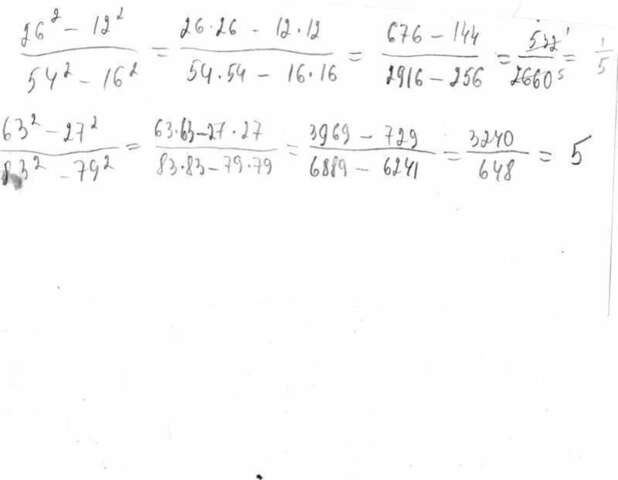 26² - 12² / 54² - 16² = 26·26 - 12·12 / 54·54 - 16·16 = 676 - 144 / 2916 - 256 = 532¹ / 2660⁵ = 1/5
63² - 27² / 83² - 79² = 63·63 - 27·27 / 83·83 - 79·79 = 3969 - 729 / 6889 - 6241 = 3240 / 648 = 5